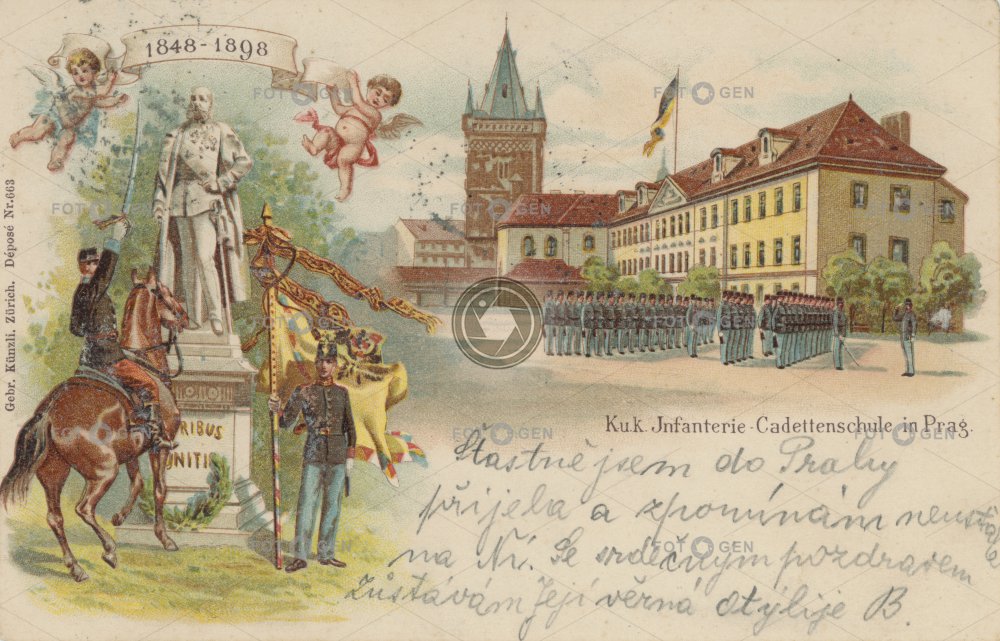 1848-1898
Gebr. Künzli. Zürich. Déposé Nr. 663
RIBUS
UNITIS
K.u.k. Infanterie-Cadettenschule in Prag.
Štastně jsem do Prahy
přijela a zpomínám neustále
na Ní. Se srdečným pozdravem
Zůstávám Její věrná Otylije B.
FOTOGEN